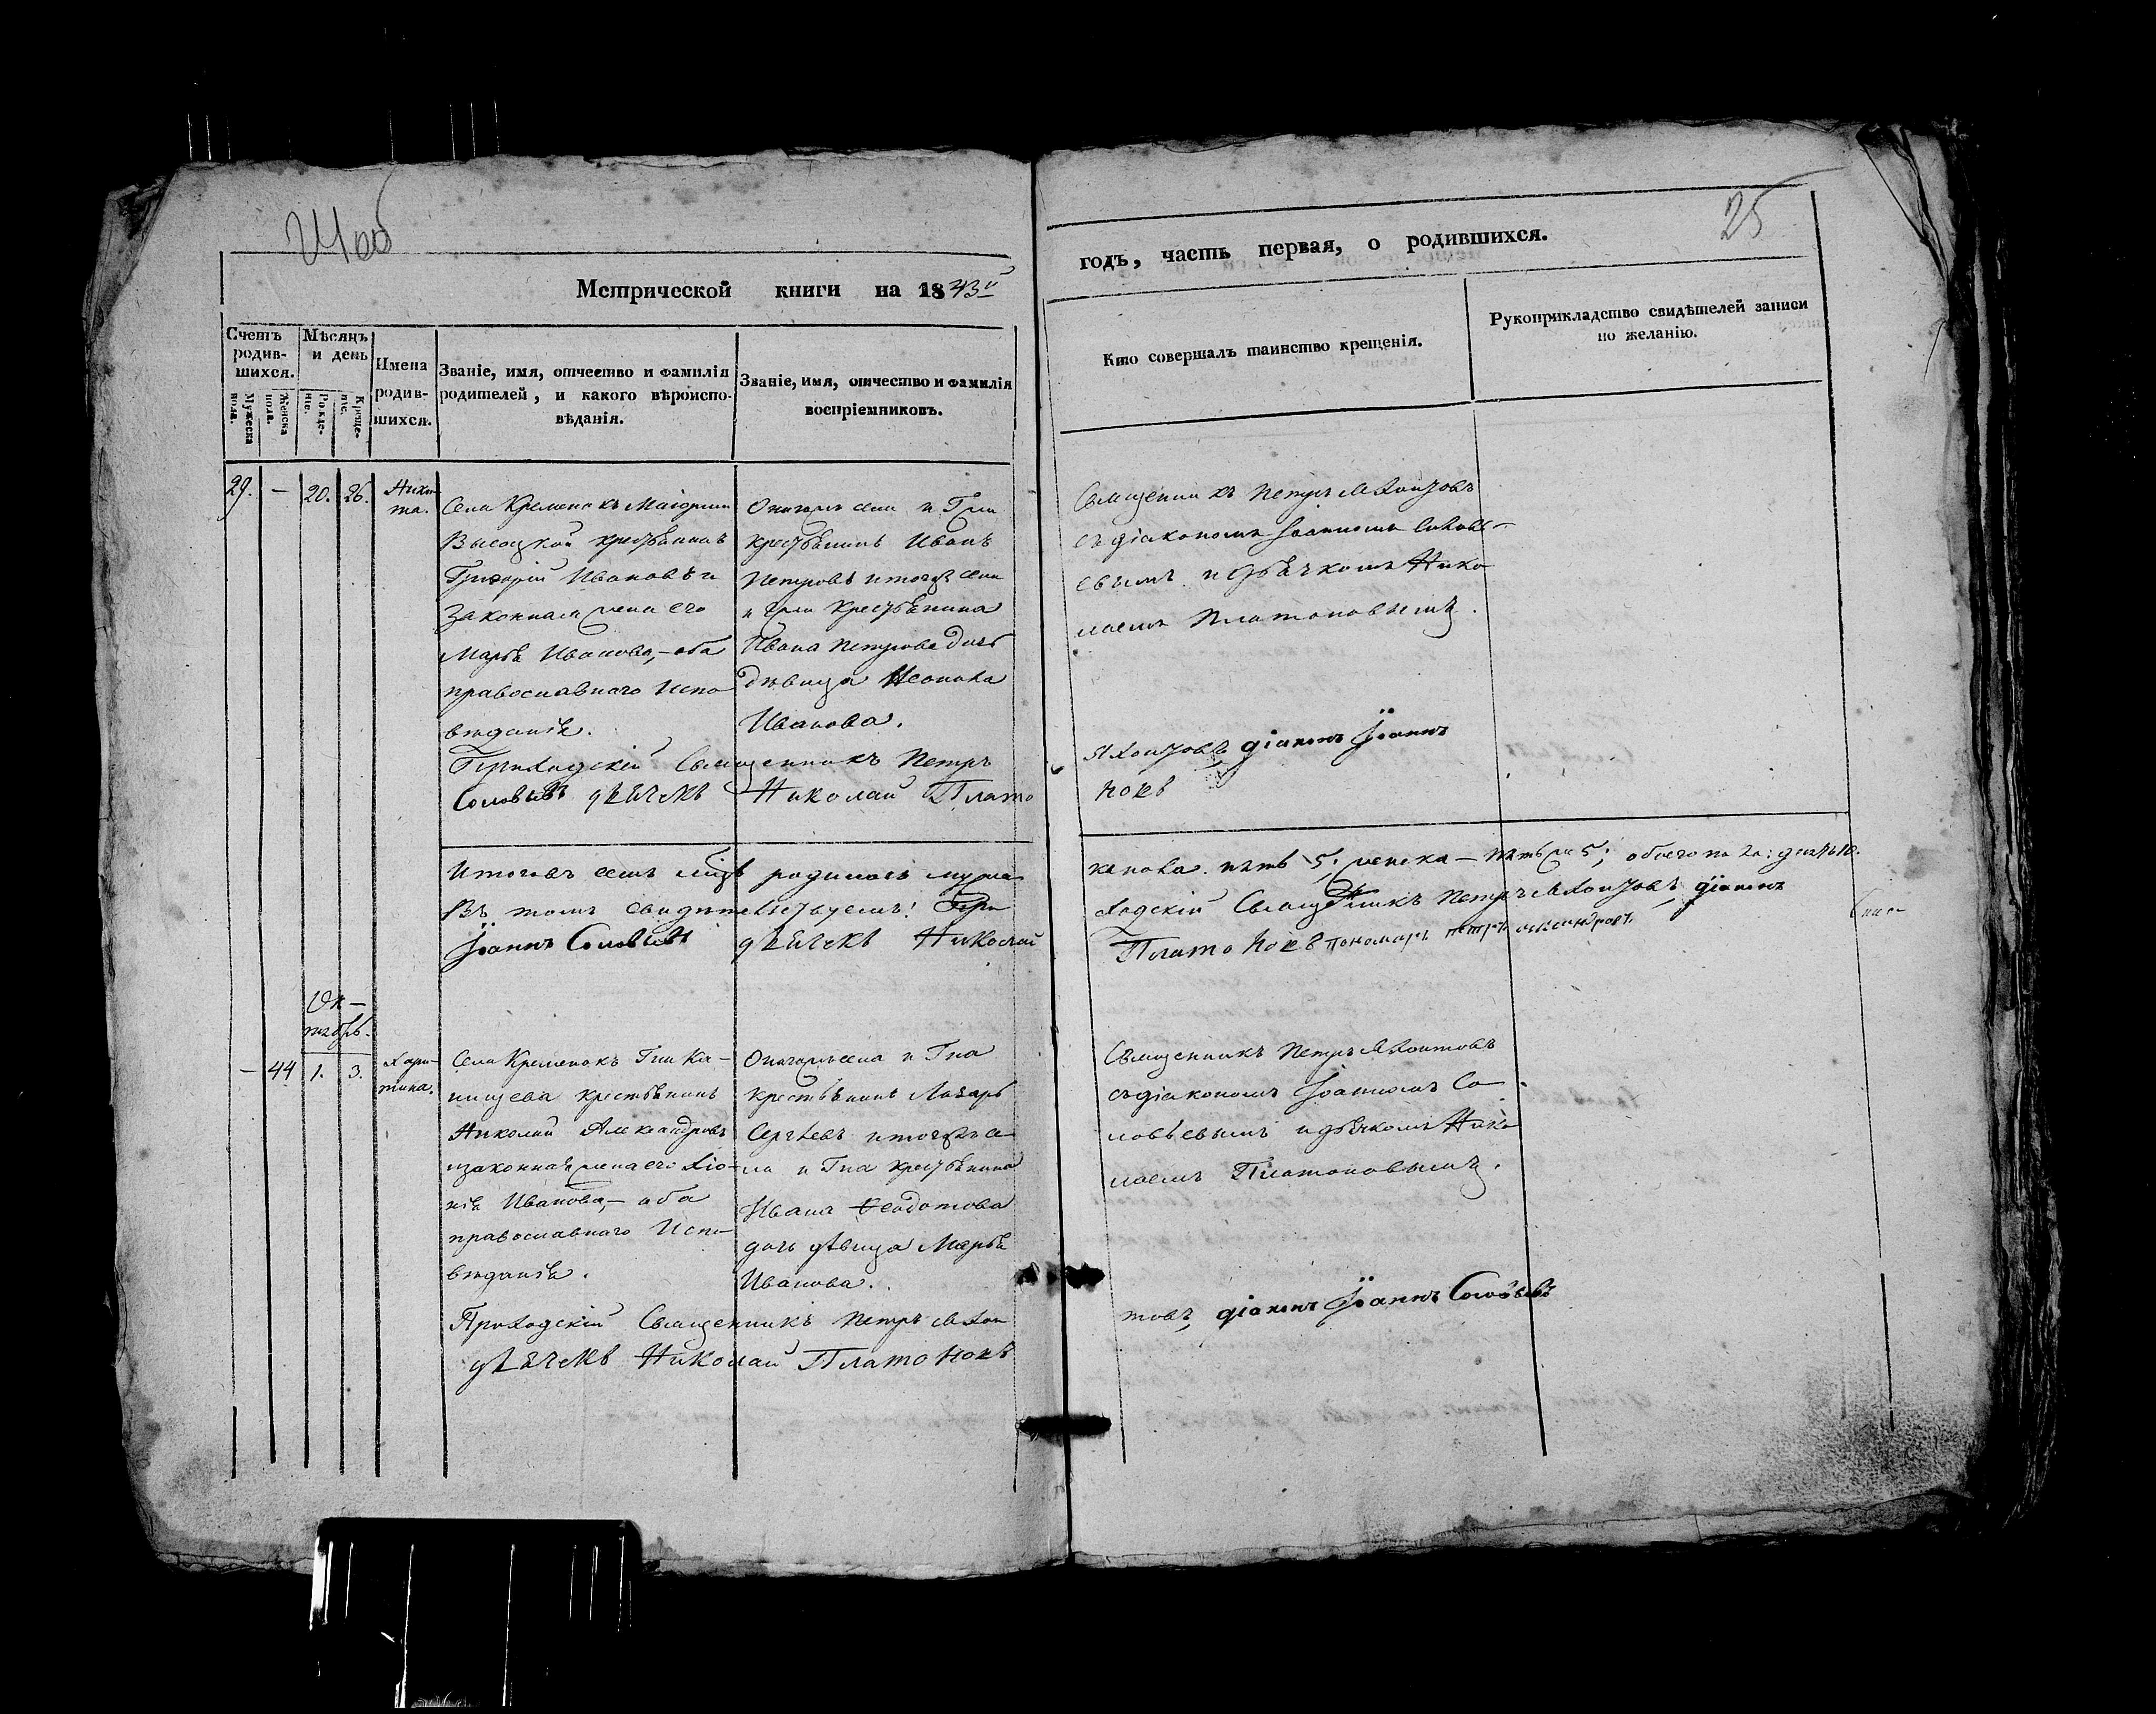 24 об
25
Метрической книги на 1843й
годъ, часть первая, о родившихся.
Счетъ родив-шихся.
Мужеска пола.
Женска пола.
Мѣсяцъ и день
Рожде-ніе.
Креще-ніе.
Имена родив-шихся.
Званіе, имя, отчество и фамилія
родителей, и какого вѣроиспо-
вѣданія.
Званіе, имя, отчество и фамилія
воспріемниковъ.
Кто совершалъ таинство крещенія.
Рукоприкладство свидѣтелей записи
по желанію.
29. — 20. 26.
Ники-
та.
Села Кременокъ Маіорши
Высоцкой крестьянинъ
Григорій Ивановъ и
законная жена его
Марья Иванова, – оба
православнаго испо
вѣданія.
Оного же села и Гжи
крестьянинъ Иванъ
Петровъ и тогожъ села
и Гжи крестьянина
Ивана Петрова дочь
дѣвица
Иванова.
Священникъ Петръ
съ діакономъ Іоанномъ Соловь-
евымъ и дьячкомъ Нико
лаемъ Платоновымъ.
Приходскій Священникъ Петръ
діаконъ Іоаннъ
Соловьевъ дьячекъ Николай Плато
новъ
родилось мужес
каго пола. пять 5; женска – пять 5; обоего пола:
Въ томъ свидѣтельствуемъ: При
ходскій Священникъ Петръ діаконъ
Іоаннъ Соловьевъ дьячекъ Николай
Платоновъ пономарь Петръ
Ок-
тябрь.
— 44 1. 3.
Хари-
тина.
Села Кременокъ Гна Ка-
нищева крестьянинъ
Николай Александровъ
и законная жена его Хіо-
нія Иванова, – оба
православнаго Испо-
вѣданія.
Оного же села и Гна
крестьянинъ Лазарь
Сергѣевъ и тогожъ се-
ла и Гна крестьянина
Ивана Ѳеодотова
дочь дѣвица Марья
Иванова.
Священникъ Петръ
съ діакономъ Іоанномъ Со-
ловьевымъ и дьячкомъ Нико
лаемъ Платоновымъ.
Приходскій Священникъ Петръ
товъ, діаконъ Іоаннъ Соловьевъ
дьячекъ Николай Платоновъ